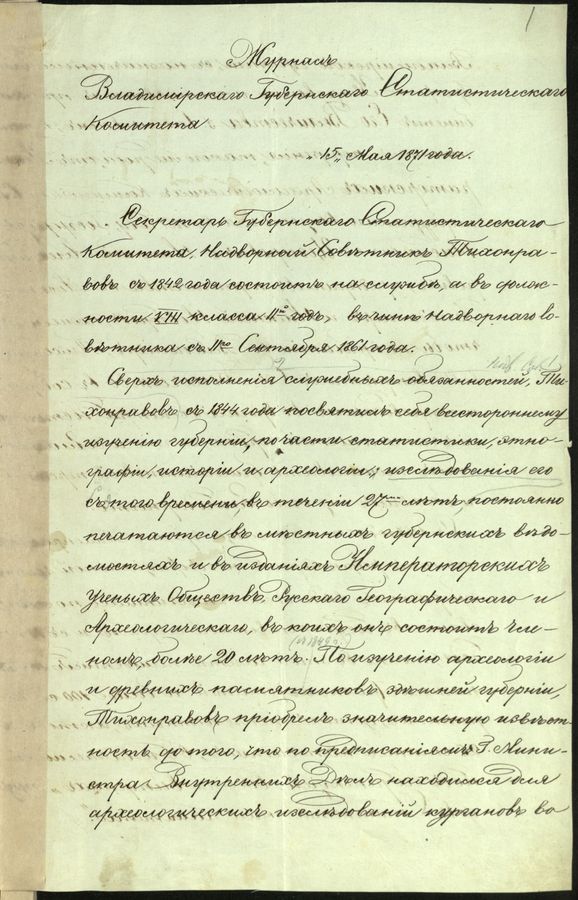 1
Журналъ
Владимірскаго Губернскаго Статистическаго
Комитета
„15„ Мая 1871 года.
Секретарь Губернскаго Статистическаго
Комитета, Надворный Совѣтникъ Тихонра-
вовъ съ 1842 года состоитъ на службѣ, а въ долж-
ности VIII класса 11й годъ, въ чинѣ Надворнаго Со-
вѣтника съ 11го Сентября 1861 года.
Сверхъ исполненія служебныхъ обязанностей, Ти-
хонравовъ съ 1844 года посвятилъ себя всестороннему
изученію губерніи, по части статистики, этно-
графіи, исторіи и археологіи; изслѣдованія его
съ того времени въ теченіи 27 лѣтъ постоянно
печатаются въ мѣстныхъ губернскихъ вѣдо-
мостяхъ и въ изданіяхъ Императорскихъ
Ученыхъ Обществъ, Русскаго Географическаго и
Археологическаго, въ коихъ онъ состоитъ чле-
(съ 1849 г.)
номъ болѣе 20 лѣтъ. По изученію археологіи
и древнихъ памятниковъ здѣшней губерніи,
Тихонравовъ пріобрелъ значительную извѣст-
ность до того, что по предписаніямъ Г. Мини-
стра Внутреннихъ Дѣлъ находился для
археологическихъ изслѣдованій кургановъ во